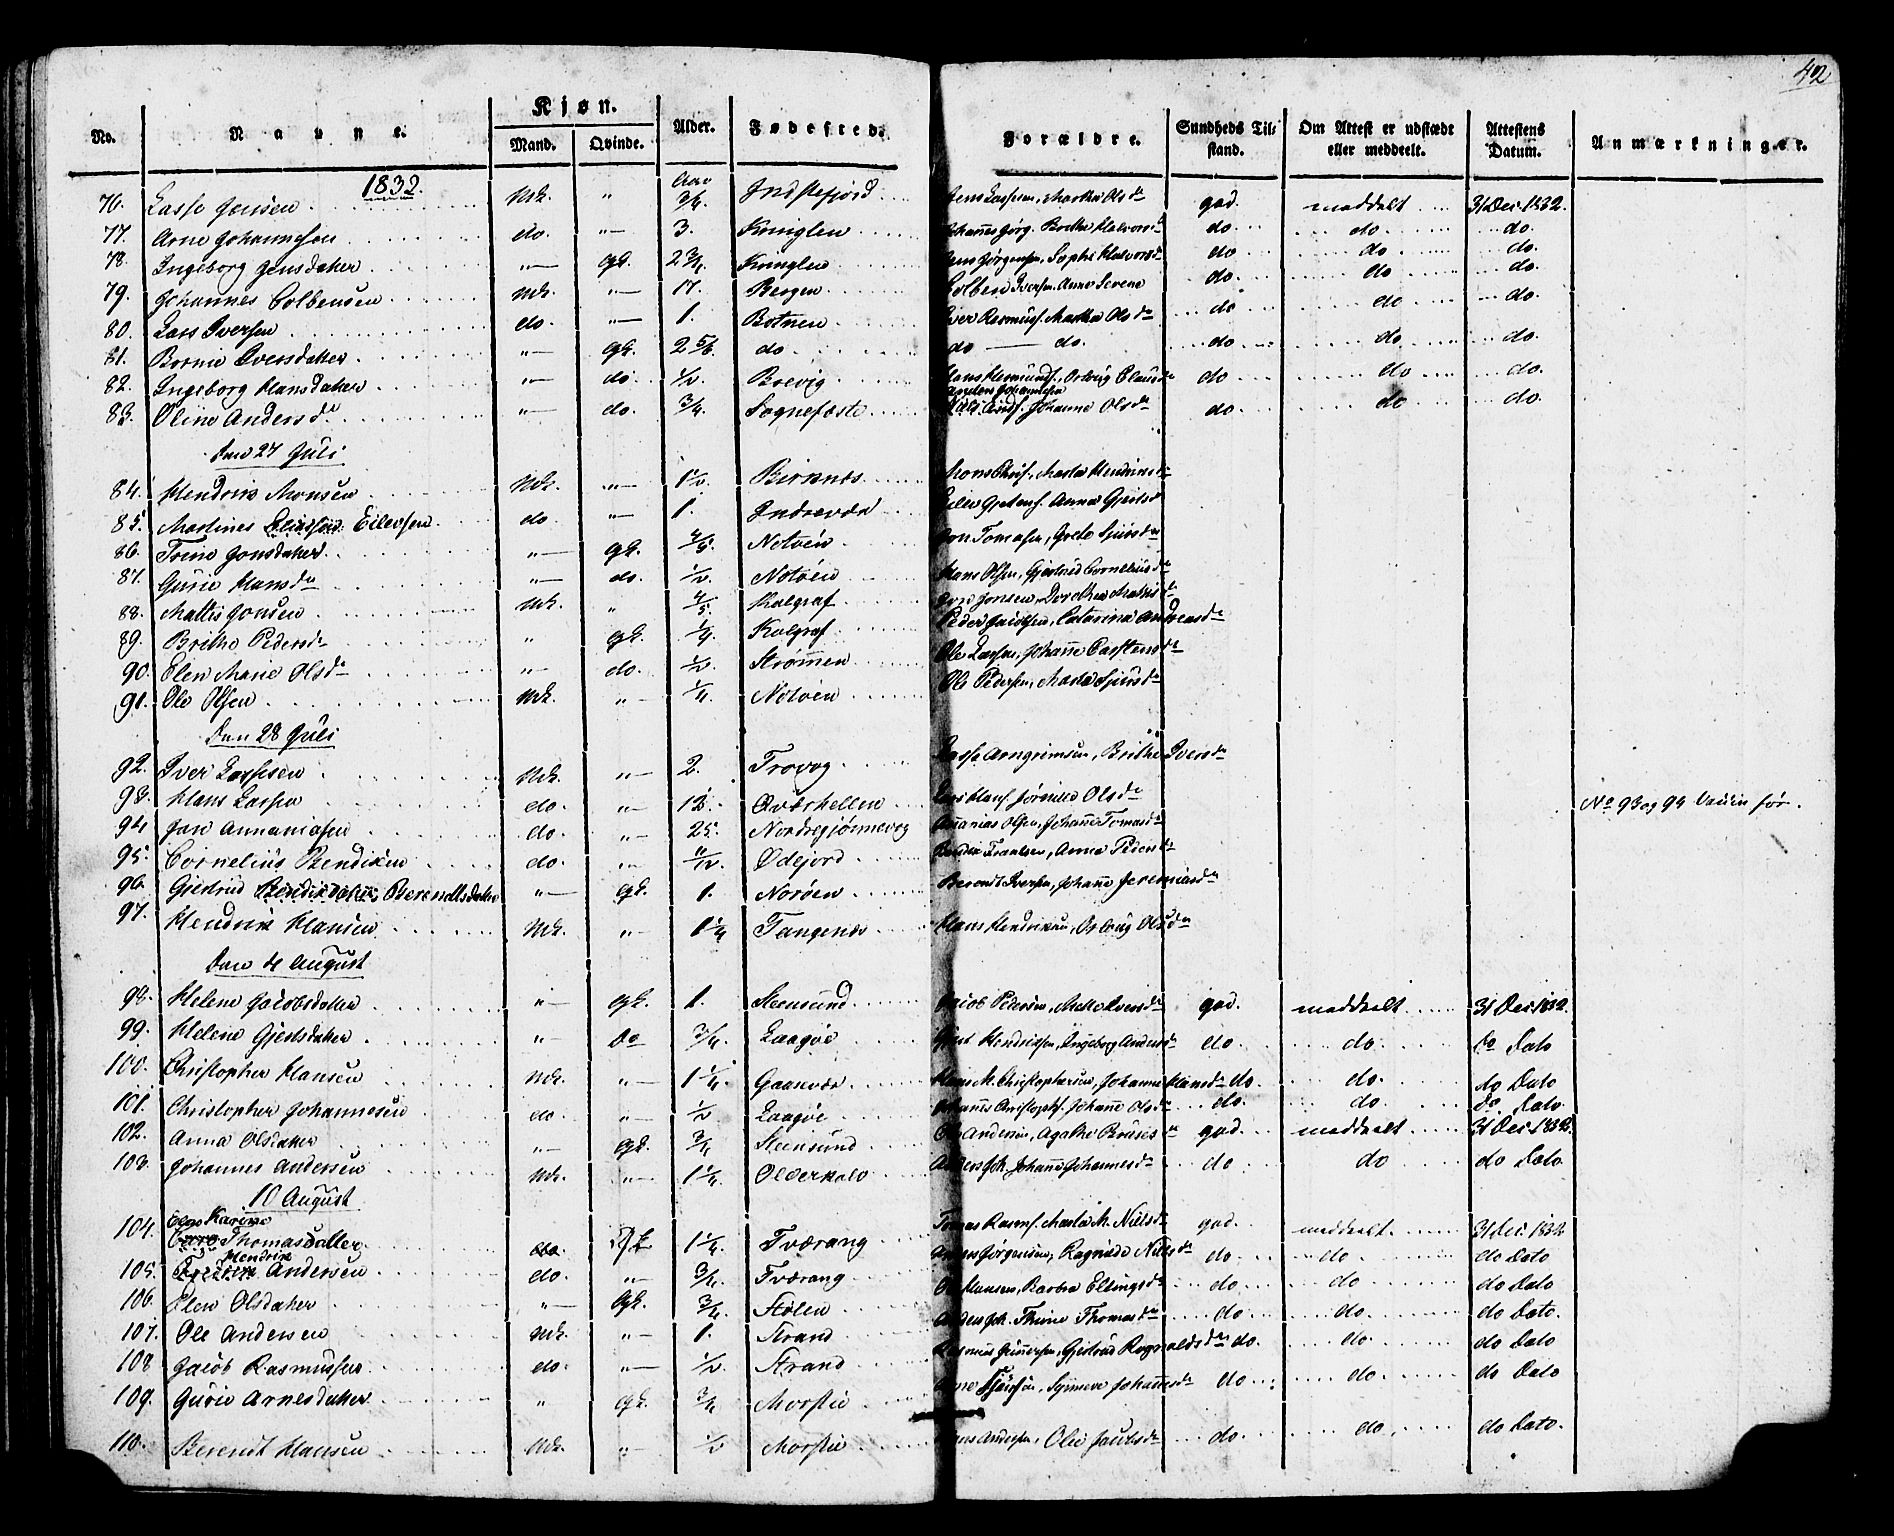 42
No. Navne. Kjøn. Mand. Qvinde. Alder. Fødested. Forældre. Sundheds Tilstand. Om Attest er udstædt eller meddeelt. Attestens Datum. Anmærkninger.
1832.
76. Lasse Jensen Mk. " Aar 3/4. Indstefjord Jens Lassesen, Martha Olsdr god. meddelt 31 Dec. 1832.
77. Arne Johannesen do. " 3. Kringlen Johannes Jørg. Brithe Halvorsdr do. do. do.
78. Ingeborg Jensdatter " Qk. 2 3/4. Kringlen Jens Jørgensen, Sophi Halvorsdr do do. do.
79. Johannes Colbensen Mk. " 17. Bergen Colben Iversen Anne Serene do. do do.
80. Lars Iversen do. " 1. Botnen Iver Rasmus. Martha Olsdr do do do.
81. Iversdatter " Qk. 2 5/6. do. do do. do. do. do.
82. Ingeborg Hansdatter " do. 1/2. Brevig Hans do do do.
83. Oline Andersdr " do. 3/4. Sognefæste Anders Johannesen Johanne Olsdr do. do do.
Den 27 Juli
84. Hendrik Monsen Mk. " 1 1/2. Birknes Mons Martha Hendriksdr
85. Martines Eilevsen do " 1. Indrevær Eilev Anna Gjertsd
86. Trine Jonsdatter " Qk. 4/5. Notøen Jon Tomasen, Grete Siursdr
87. Gurie Hansdr " do. 1/2. Notøen Hans Olsen, Gjertrud Corneliusdr
88. Mattis Jonsen Mk. " 4/5. Kalgraf Jon Jonsen, Dorothea Mattisdr
89. Brithe Pedersdr " Qk. 1/4. Kalgraf Peder Jacobsen, Catarina Andreasdr
90. Elen Marie Olsdr " do. 1/2. Strømmen Ole Larsen, Johanne Carstensdr
91. Ole Olsen Mk. " 1/4. Notøen Ole Pedersen, Martha Siursdr
Den 28 Juli
92. Iver Lassesen Mk. " 2. Trovog Lasse Arngrimsen, Brithe Iversdr
93. Hans Larsen do. " 12. Qværhellen Lars Hans. Olsdr No 93 og 94 før.
94. Jan Annaniasen do. " 25. Nordregjønnevog Ananias Olsen, Johanne Tomasdr
95. Cornelius Bendiksen do. " 11/12. Odejord Bendix Frantsen, Anna Pedersdr
96. Gjertrud Berendtsdatter " Qk. 1. Norøen Berendt Iversen, Johanne Jeremiasdr
97. Hendrik Hansen Mk. " 1 1/4 Tangenes Hans Hendriksen, Olsdr
Den 4 August
98. Helene Jacobsdatter " Qk. 1. Steensund Jacob Pedersen, Mette Iversdr god. meddeelt 31 Dec. 1832.
99. Helene Gjertsdatter " do 3/4. Laagøe Gjert Hendriksen, Ingeborg Andersdr do. do. do Dato
100. Christopher Hansen Mk. " 1 1/4. Gaasvær Hans M. Christophersen, Johanne Hansdr do. do. do Dato
101. Christopher Johannesen do. " 1/2. Laagøe Johannes Christophs. Johanne Olsdr do. do. do Dato.
102. Anna Olsdatter " Qk. 3/4 Steensund Ole Andersen, Agathe god. meddeelt 31 Dec. 1832.
103. Johannes Andersen Mk. " 1 1/4. Olderkalv Anders Joh. Johanne Johannesdr do do do Dato
10 August
104. Karine Thomasdatter Qk 1 1/4. Tværang Tomas Rasms. Martha M. Nielsdr god. meddeelt. 31 Dec. 1832
105. Hendrik Andersen do. " 3/4. Tværang Anders Jørgensen, Ragnilde Nielsdr do. do do Dato
106. Elen Olsdatter " Qk. 3/4. Stølen Ole Hansen, Barbra Ellingsdr do. do do Dato
107. Ole Andersen Mk. " 1. Strand Anders Joh. Thrine Thomasdr do. do. do Dato.
108. Jacob Rasmussen do. " 1/2 Strand Rasmus Gjertrud Rognaldsdr do. do. do Dato
109. Gurie Arnesdatter " Qk. 3/4 Morstie Arne Synneve Johannesdr do. do. do Dato
110. Berendt Hansen Mk. " 1/2 Morstie Hans Andersen, Olie do. do, do Dato.